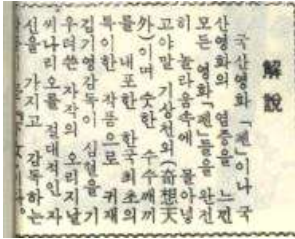 解說
국산영화「팬」이나 국
산영화의 염증을 느낀
모든 영화「팬」들을 완전
히 놀라움속에 몰아넣
고야말 기상천외(奇想天
外)이며 숫한 수수께끼
를 내포한 한국최초의
특이한 작품으로 귀재
김기영감독이 심혈을 기
우려쓴 자작의 오리지날
씨나리오를 절대적인 자
신을 가지고 감독하는